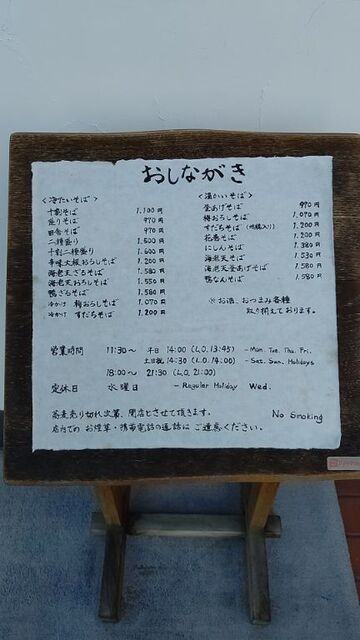 おしながき
<冷たいそば>
十割そば 1.100円
せいろそば 970円
田舎そば 970円
二種盛り 1.500円
十割二種盛り 1.600円
辛味大根おろしそば 1.200円
海老天ざるそば 1.580円
海老天おろしそば 1.550円
鴨ざるそば 1.580円
冷かけ 梅おろしそば 1.070円
冷かけ すだちそば 1.200円
<温かいそば>
釜あげそば 970円
梅おろしそば 1.070円
すだちそば 1.200円
花巻そば 1.200円
にしんそば 1.380円
海老天そば 1.530円
海老天釜あげそば 1.580円
鴨なんそば 1.580円
※お酒、おつまみ各種
取り揃えております。
営業時間 11:30〜 平日 14:00 (L.O. 13:45) - Mon. Tue. Thu. Fri.
土日祝 14:30 (L.O. 14:00) - Sat. Sun. Holidays
18:00〜 21:30 (L.O. 21:00)
定休日 水曜日 - Regular Holiday Wed.
蕎麦売り切れ次第、閉店とさせて頂きます。 No Smoking
店内での お煙草・携帯電話の通話は ご遠慮ください。